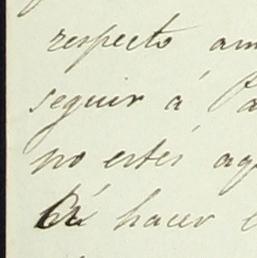 respecto am
seguir á Pa
no estés aq
hacer